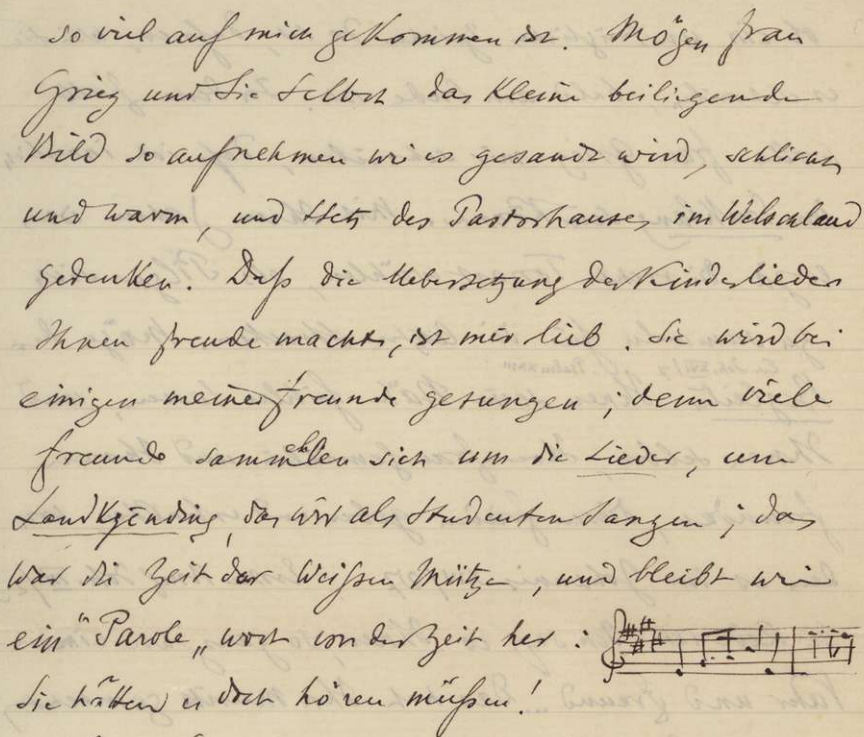 so viel auf mich gekommen ist. Mögen Frau
Grieg und Sie Selbst das Kleine beiliegende
Bild so aufnehmen wie es gesandt wird, schlicht
und warm, und stets des Pastorhauses im Welschland
gedenken. Daß die Uebersetzung der Kinderlieder
Ihnen Freude macht, ist mir lieb. Sie wird bei
einigen meiner Freunde gesungen; denn viele
Freunde sammelten sich um die Lieder, um
Landkjending, das wir als Studenten Sangen; das
war die Zeit der Weißen Mütze, und bleibt wie
ein "Parole" wort von der Zeit her:
Sie hätten es doch hören müßen!